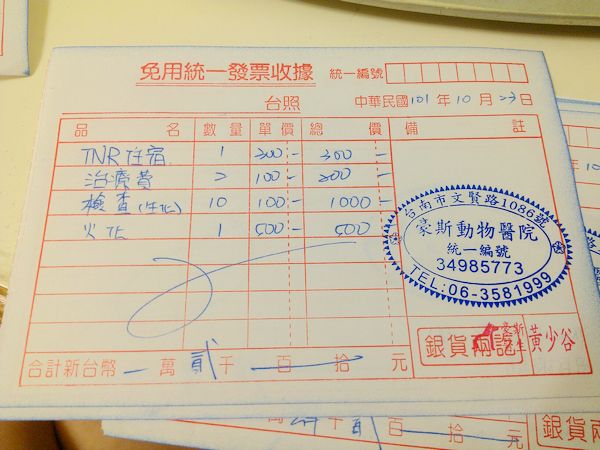 免用統一發票收據 統一編號
台照 中華民國101年10月23日
品名 數量 單價 總價 備註
TNR住宿 1 300- 300-
治療費 2 100- 200-
檢查(生化) 10 100- 1000-
火化 1 500- 500-
台南市文賢路1086號
豪斯動物醫院
統一編號
34985773
TEL:06-3581999
銀貨兩訖 黃少谷
合計新台幣 萬貳千 百 拾 元
千百 拾 元
銀貨兩